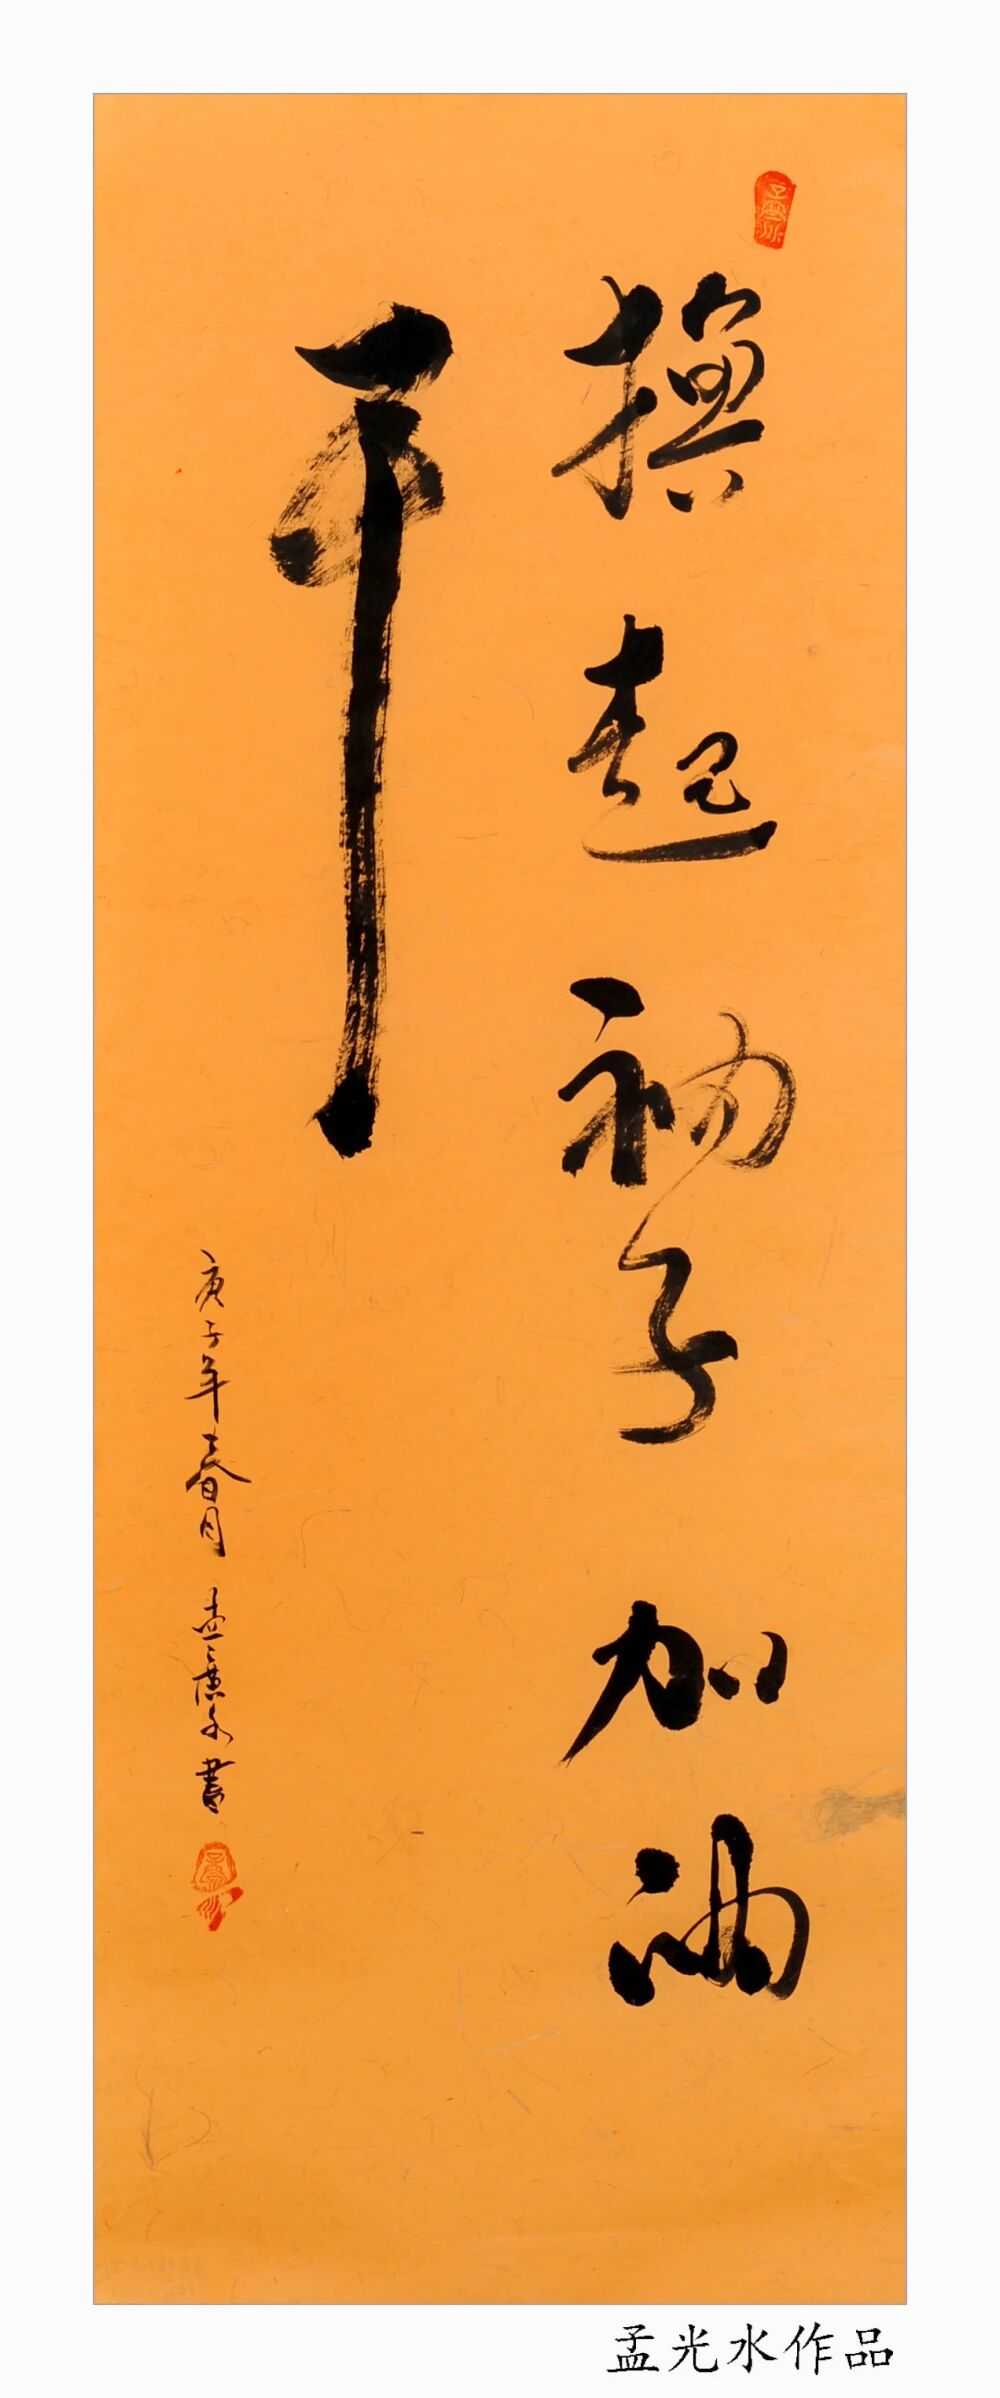 撸起袖子加油
干
庚子年春月 孟廣水書
孟光水作品